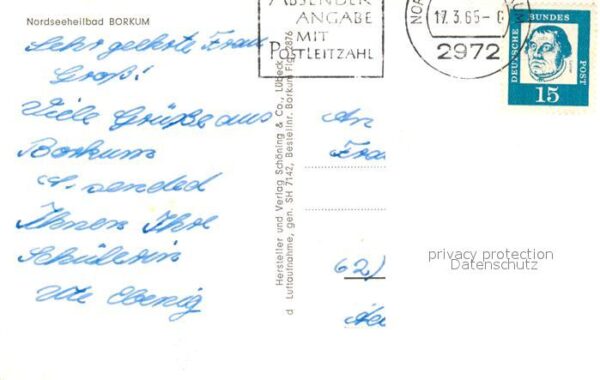 Nordseeheilbad BORKUM
Sehr geehrte Frau
Groß!
Viele Grüße aus
Borkum
sended
Ihnen Ihre
Schülerin
Ute
ABSENDER
ANGABE
MIT
POSTLEITZAHL
17.3.65-
2972
DEUTSCHE BUNDES POST
15
Hersteller und Verlag Schöning & Co., Lübeck
d Luftaufnahme, gen. SH 7142, Bestellnr. Borkum Flg. 2876
An
Frau
62)
privacy protection
Datenschutz